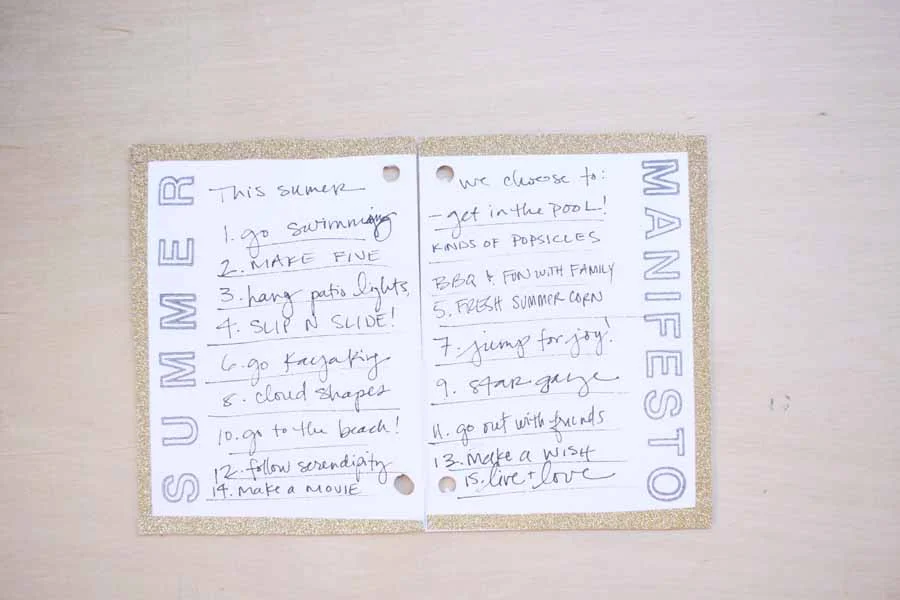 SUMMER
This sumer
1. go swimming
2. MAKE FIVE
3. hang patio lights,
4. SLIP N SLIDE!
6. go kayaking
8. cloud shapes
10. go to the beach!
12. follow serendipity
14. make a MOVIE
we choose to:
- get in the POOL!
KINDS OF POPSICLES
BBQ & FUN WITH FAMILY
5. FRESH SUMMER CORN
7. jump for joy!
9. star gaze
11. go out with friends
13. Make a WISH
15. live + love
MANIFESTO